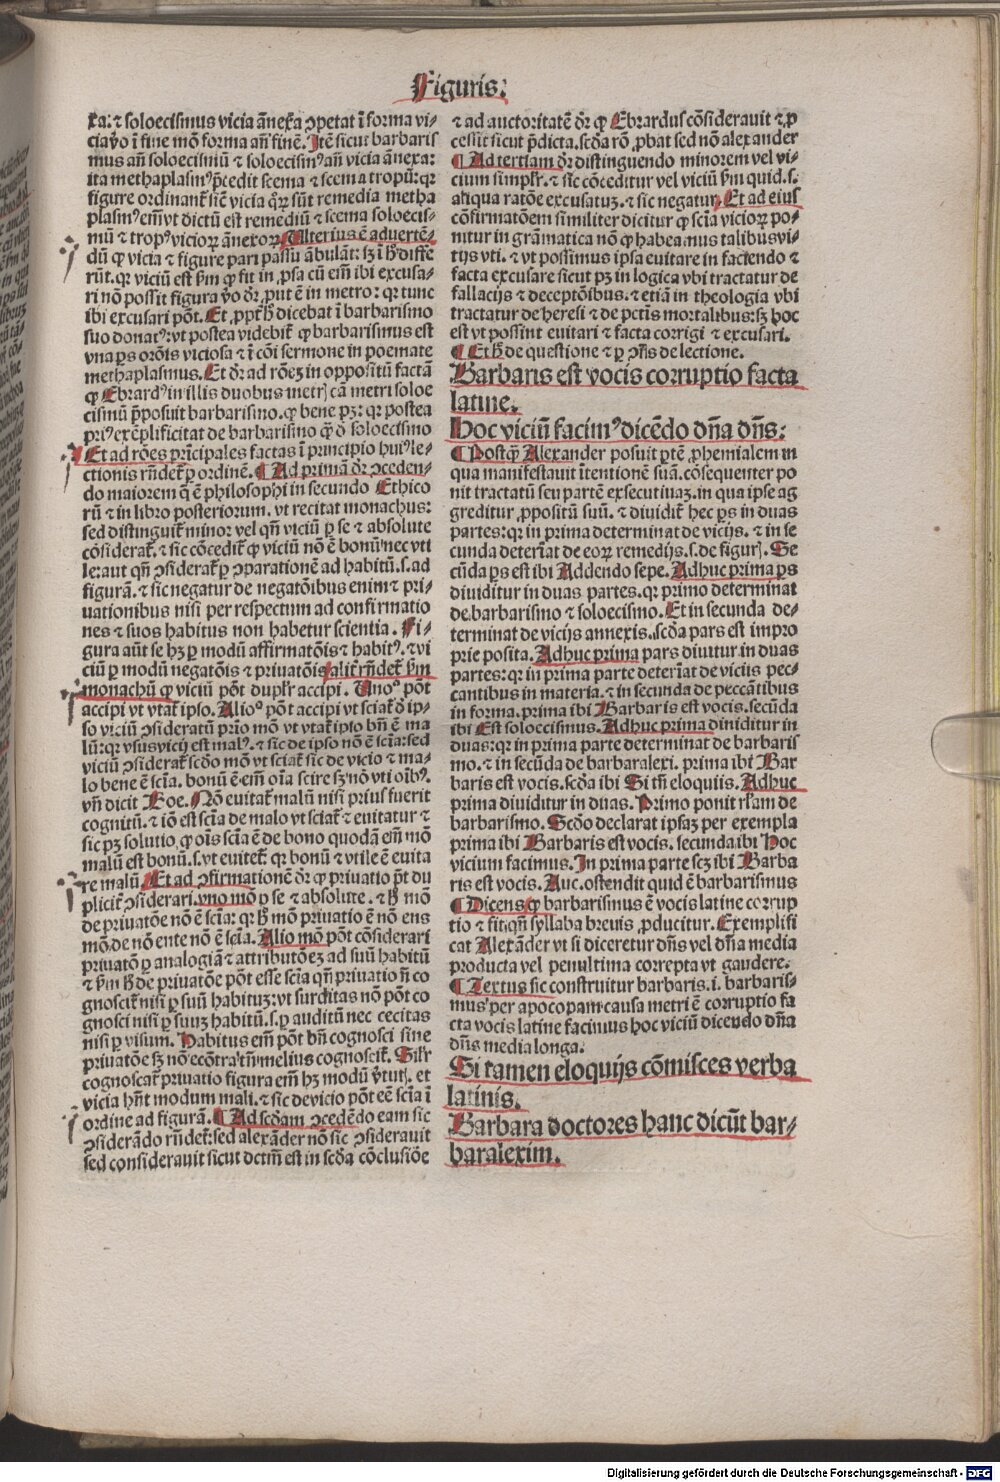 Figuris.
xa: ⁊ soloecismus vicia ãnexa ꝯpetat ĩ forma vi-
ciaṽo ĩ fine mõ forma añ finẽ. Itẽ sicut barbaris
mus añ soloecismũ ⁊ soloecismꝰ añ vicia ãnexa:
ita methaplasmꝰ p̃cedit scema ⁊ scema tropũ: qꝛ
figure ordinant̃ siẽ vicia q̃ꝛ sũt remedia metha
plasmꝰ em̃ vt dictũ est remediũ ⁊ scema soloecis-
mũ ⁊ tropꝰ vicioꝝ ãnexoꝝ Ulterius ẽ aduertẽ-
dũ ꝙ vicia ⁊ figure pari passu ãbulãt: sꝫ ĩ h̃ diffe
rũt. qꝛ viciũ est ẽm ꝙ fit in ꝓsa cũ em̃ ibi excusa-
ri nõ possit figura ṽo dr̃ ꝓut ẽ in metro: qꝛ tunc
ibi excusari põt. Et ꝓpt̃ h̃ dicebat ĩ barbarismo
suo donatꝰ: vt postea videbit̃ ꝙ barbarismus est
vna ꝑs orõis viciosa ⁊ ĩ cõi sermone in poemate
methaplasmus. Et dr̃ ad rõeꝫ in oppositũ factã
ꝙ Ebrardꝰ in illis duobus metrꝭ cã metri soloe
cismũ p̃posuit barbarismo. ꝙ bene pꝫ: qꝛ postea
priꝰ exẽplificitat de barbarismo q̃ õ soloecismo
Et ad rões prĩcipales factas ĩ principio huiꝰ le-
ctionis rñdet̃ ꝑ ordinẽ. ¶ Ad primã dr̃ ꝯceden-
do maiorem q̃ ẽ philosophi in secundo Ethico
rũ ⁊ in libro posteriorum. vt recitat monachus:
sed distinguit̃ minor vel qñ viciũ ꝑ se ⁊ absolute
cõsiderat̃. ⁊ sic cõcedit̃ ꝙ viciũ nõ ẽ bonũ nec vti
le: aut qñ ꝯsiderat̃ ꝑ ꝯparationẽ ad habitũ. s. ad
figurã. ⁊ sic negatur de negatõibus enim ⁊ pri-
uationibus nisi per respectum ad confirmatio
nes ⁊ suos habitus non habetur scientia. Fi-
gura aũt se hꝫ ꝑ modũ affirmatõis ⁊ habitꝰ. ⁊ vi
ciũ ꝑ modũ negatõis ⁊ priuatõis alit̃ rñdet̃ ẽm
monachũ ꝙ viciũ põt duplr̃ accipi. Unoº põt
accipi vt vtat̃ ipso. Alioº põt accipi vt sciat̃ ð ip-
so viciũ ꝯsideratũ prio mõ vt vtat̃ ipso bñ ẽ ma
lũ: qꝛ vsus vicij est malꝰ. ⁊ sic de ipso nõ ẽ scĩa: sed
viciũ ꝯsiderat̃ scðo mõ vt sciat̃ sic de vicio ⁊ ma-
lo bene ẽ scĩa. bonũ ẽ em̃ oĩa scire sꝫ nõ vti oĩbꝰ.
vñ dicit Boe. Nõ euitat̃ malũ nisi prius fuerit
cognitũ. ⁊ iõ est scĩa de malo vt sciat̃ ⁊ euitatur ⁊
sic pꝫ solutio ꝙ oĩs scĩa ẽ de bono quodã em̃ mõ
malũ est bonũ. s. vt euitet̃ qꝛ bonũ ⁊ vtile ẽ euita
re malũ Et ad ꝯfirmationẽ dr̃ ꝙ priuatio p̃t du
plicit̃ ꝯsiderari. vno mõ ꝑ se ⁊ absolute. ⁊ h̃ mõ
de priuatõe nõ ẽ scĩa: qꝛ h̃ mõ priuatio ẽ nõ ens
mõ de nõ ente nõ ẽ scĩa. Alio mõ põt cõsiderari
priuatõ ꝑ analogiã ⁊ attributõeꝫ ad suũ habitũ
⁊ ẽm h̃ de priuatõe põt esse scĩa qñ priuatio ñ co
gnoscit̃ nisi ꝑ suũ habituꝫ: vt surditas nõ põt co
gnosci nisi ꝑ suuꝫ habitũ. s. ꝑ auditũ nec cecitas
nisi ꝑ visum. Habitus em̃ põt bñ cognosci sine
priuatõe sꝫ nõ ecõtra tm̃ melius cognoscit̃. Silr̃
cognoscat̃ priuatio figura em̃ hꝫ modũ ṽtutꝭ. et
vicia hñt modum mali. ⁊ sic de vicio põt eẽ scĩa ĩ
ordine ad figurã. ¶ Ad scðam ꝯcedẽdo eam sic
ꝯsiderãdo rñdet̃: sed alexãder nõ sic ꝯsiderauit
sed considerauit sicut dctm̃ est in scða cõclusiõe
⁊ ad auctoritatẽ dr̃ ꝙ Ebrardus cõsiderauit ⁊ ꝓ
cessit sicut p̃dicta. scða rõ ꝓbat sed nõ alexander
¶ Ad tertiam dr̃ distinguendo minorem vel vi-
cium simplr̃. ⁊ sic cõceditur vel viciũ ẽm quid. s.
aliqua ratõe excusatuꝫ. ⁊ sic negatur. Et ad eius
cõfirmatõem similiter dicitur ꝙ scĩa vicioꝝ po-
nitur in grãmatica nõ ꝙ habeamus talibus vi-
tijs vti. ⁊ vt possimus ipsa euitare in faciendo ⁊
facta excusare sicut pꝫ in logica vbi tractatur de
fallacijs ⁊ deceptõibus. ⁊ etiã in theologia vbi
tractatur de heresi ⁊ de pctĩs mortalibus: sꝫ hoc
est vt possint euitari ⁊ facta corrigi ⁊ excusari.
¶ Et h̃ de questione ⁊ ꝑ ꝯñs de lectione.
Barbaris est vocis corruptio facta
latine.
Hoc viciũ facimꝰ dicẽdo dña dñs:
¶ Postꝙ̃ Alexander posuit ꝑtẽ ꝓhemialem in
qua manifestauit ĩtentionẽ suã. cõsequenter po
nit tractatũ seu partẽ exsecutiuaꝫ. in qua ipse ag
greditur ꝓpositũ suũ. ⁊ diuidit̃ hec ꝑs in duas
partes: qꝛ in prima determinat de vicijs. ⁊ in se
cunda deter̃iat de eoꝝ remedijs. s. de figurꝭ. Se
cũda ꝑs est ibi Addendo sepe. Adhuc prima ꝑs
diuiditur in duas partes. qꝛ primo determinat
de barbarismo ⁊ soloecismo. Et in secunda de-
terminat de vicijs annexis. scða pars est impro
prie posita. Adhuc prima pars diuitur in duas
partes: qꝛ in prima parte deter̃iat de viciis pec-
cantibus in materia. ⁊ in secunda de peccãtibus
in forma. prima ibi Barbaris est vocis. secũda
ibi Est soloecismus. Adhuc prima diniditur in
duas: qꝛ in prima parte determinat de barbaris
mo. ⁊ in secũda de barbaralexi. prima ibi Bar
baris est vocis. scða ibi Si tñ eloquiis. Adhuc
prima diuiditur in duas. Primo ponit rl̃am de
barbarismo. Scðo declarat ipsaꝫ per exempla
prima ibi Barbaris est vocis. secunda ibi Hoc
vicium facimus. In prima parte scꝫ ibi Barba
ris est vocis. Auc. ostendit quid ẽ barbarismus
¶ Dicens ꝙ barbarismus ẽ vocis latine corrup
tio ⁊ fit: qñ syllaba breuis ꝓducitur. Exemplifi
cat Alexãder vt si diceretur dñs vel dña media
producta vel penultima correpta vt gaudere.
¶ Textus sic construitur barbaris. i. barbaris-
mus per apocopam causa metri ẽ corruptio fa
cta vocis latine facimus hoc viciũ dicendo dña
dñs media longa.
Si tamen eloquijs cõmisces verba
latinis.
Barbara doctores hanc dicũt bar-
baralexim.
Digitalisierung gefördert durch die Deutsche Forschungsgemeinschaft - DFG